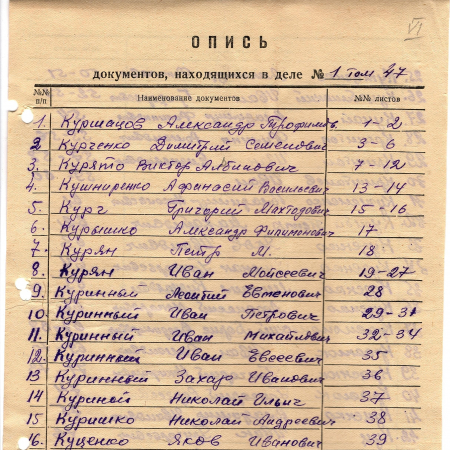 VI
ОПИСЬ
документов, находящихся в деле № 1 том 47
№№ п/п Наименование документов №№ листов
1. Куршацов Александр Трофимов. 1-2
2 Курченко Димитрий Семенович 3-6
3. Курято Виктор Албинович 7-12
4. Кушниренко Афанасий Васильевич 13-14
5. Кург Григорий 15-16
6. Курышко Александр Филимонович 17
7. Курян Петр М. 18
8. Курян Иван Мойсеевич 19-27
9. Куринный Леонтий Евменович 28
10. Куринный Иван Петрович 29-31
11. Куринный Иван Михайлович 32-34
12. Куринный Иван Евсеевич 35
13 Куринный Захар Иванович 36
14 Куриной Николай Ильич 37
15 Куришко Николай Андреевич 38
16. Куценко Яков Иванович 39